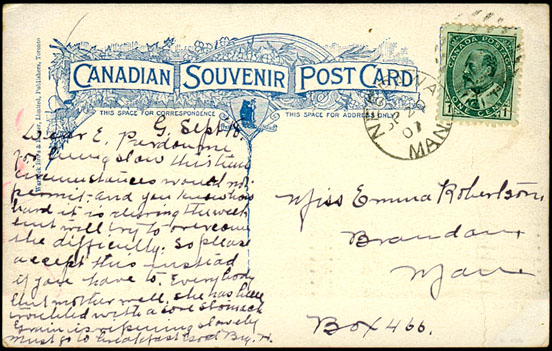 CANADIAN SOUVENIR POST CARD
THIS SPACE FOR CORRESPONDENCE
THIS SPACE FOR ADDRESS ONLY
CANADA POSTAGE
MAN
G. Sept 18.
Dear E. Pardon me
for being slow this time
circumstances would not
permit. and you know how
hard it is during the week
but will try to overcome
the difficulty. So please
accept this instead
if you have to. Everybody
but mother well, she has been
troubled with a sore stomach
Grain is ripening slowly
must go to breakfast Good Bye. H.
Miss Emma Robertson
Brandon
Man
Box 466.
Warwick Bro's & Rutter, Limited, Publishers, Toronto